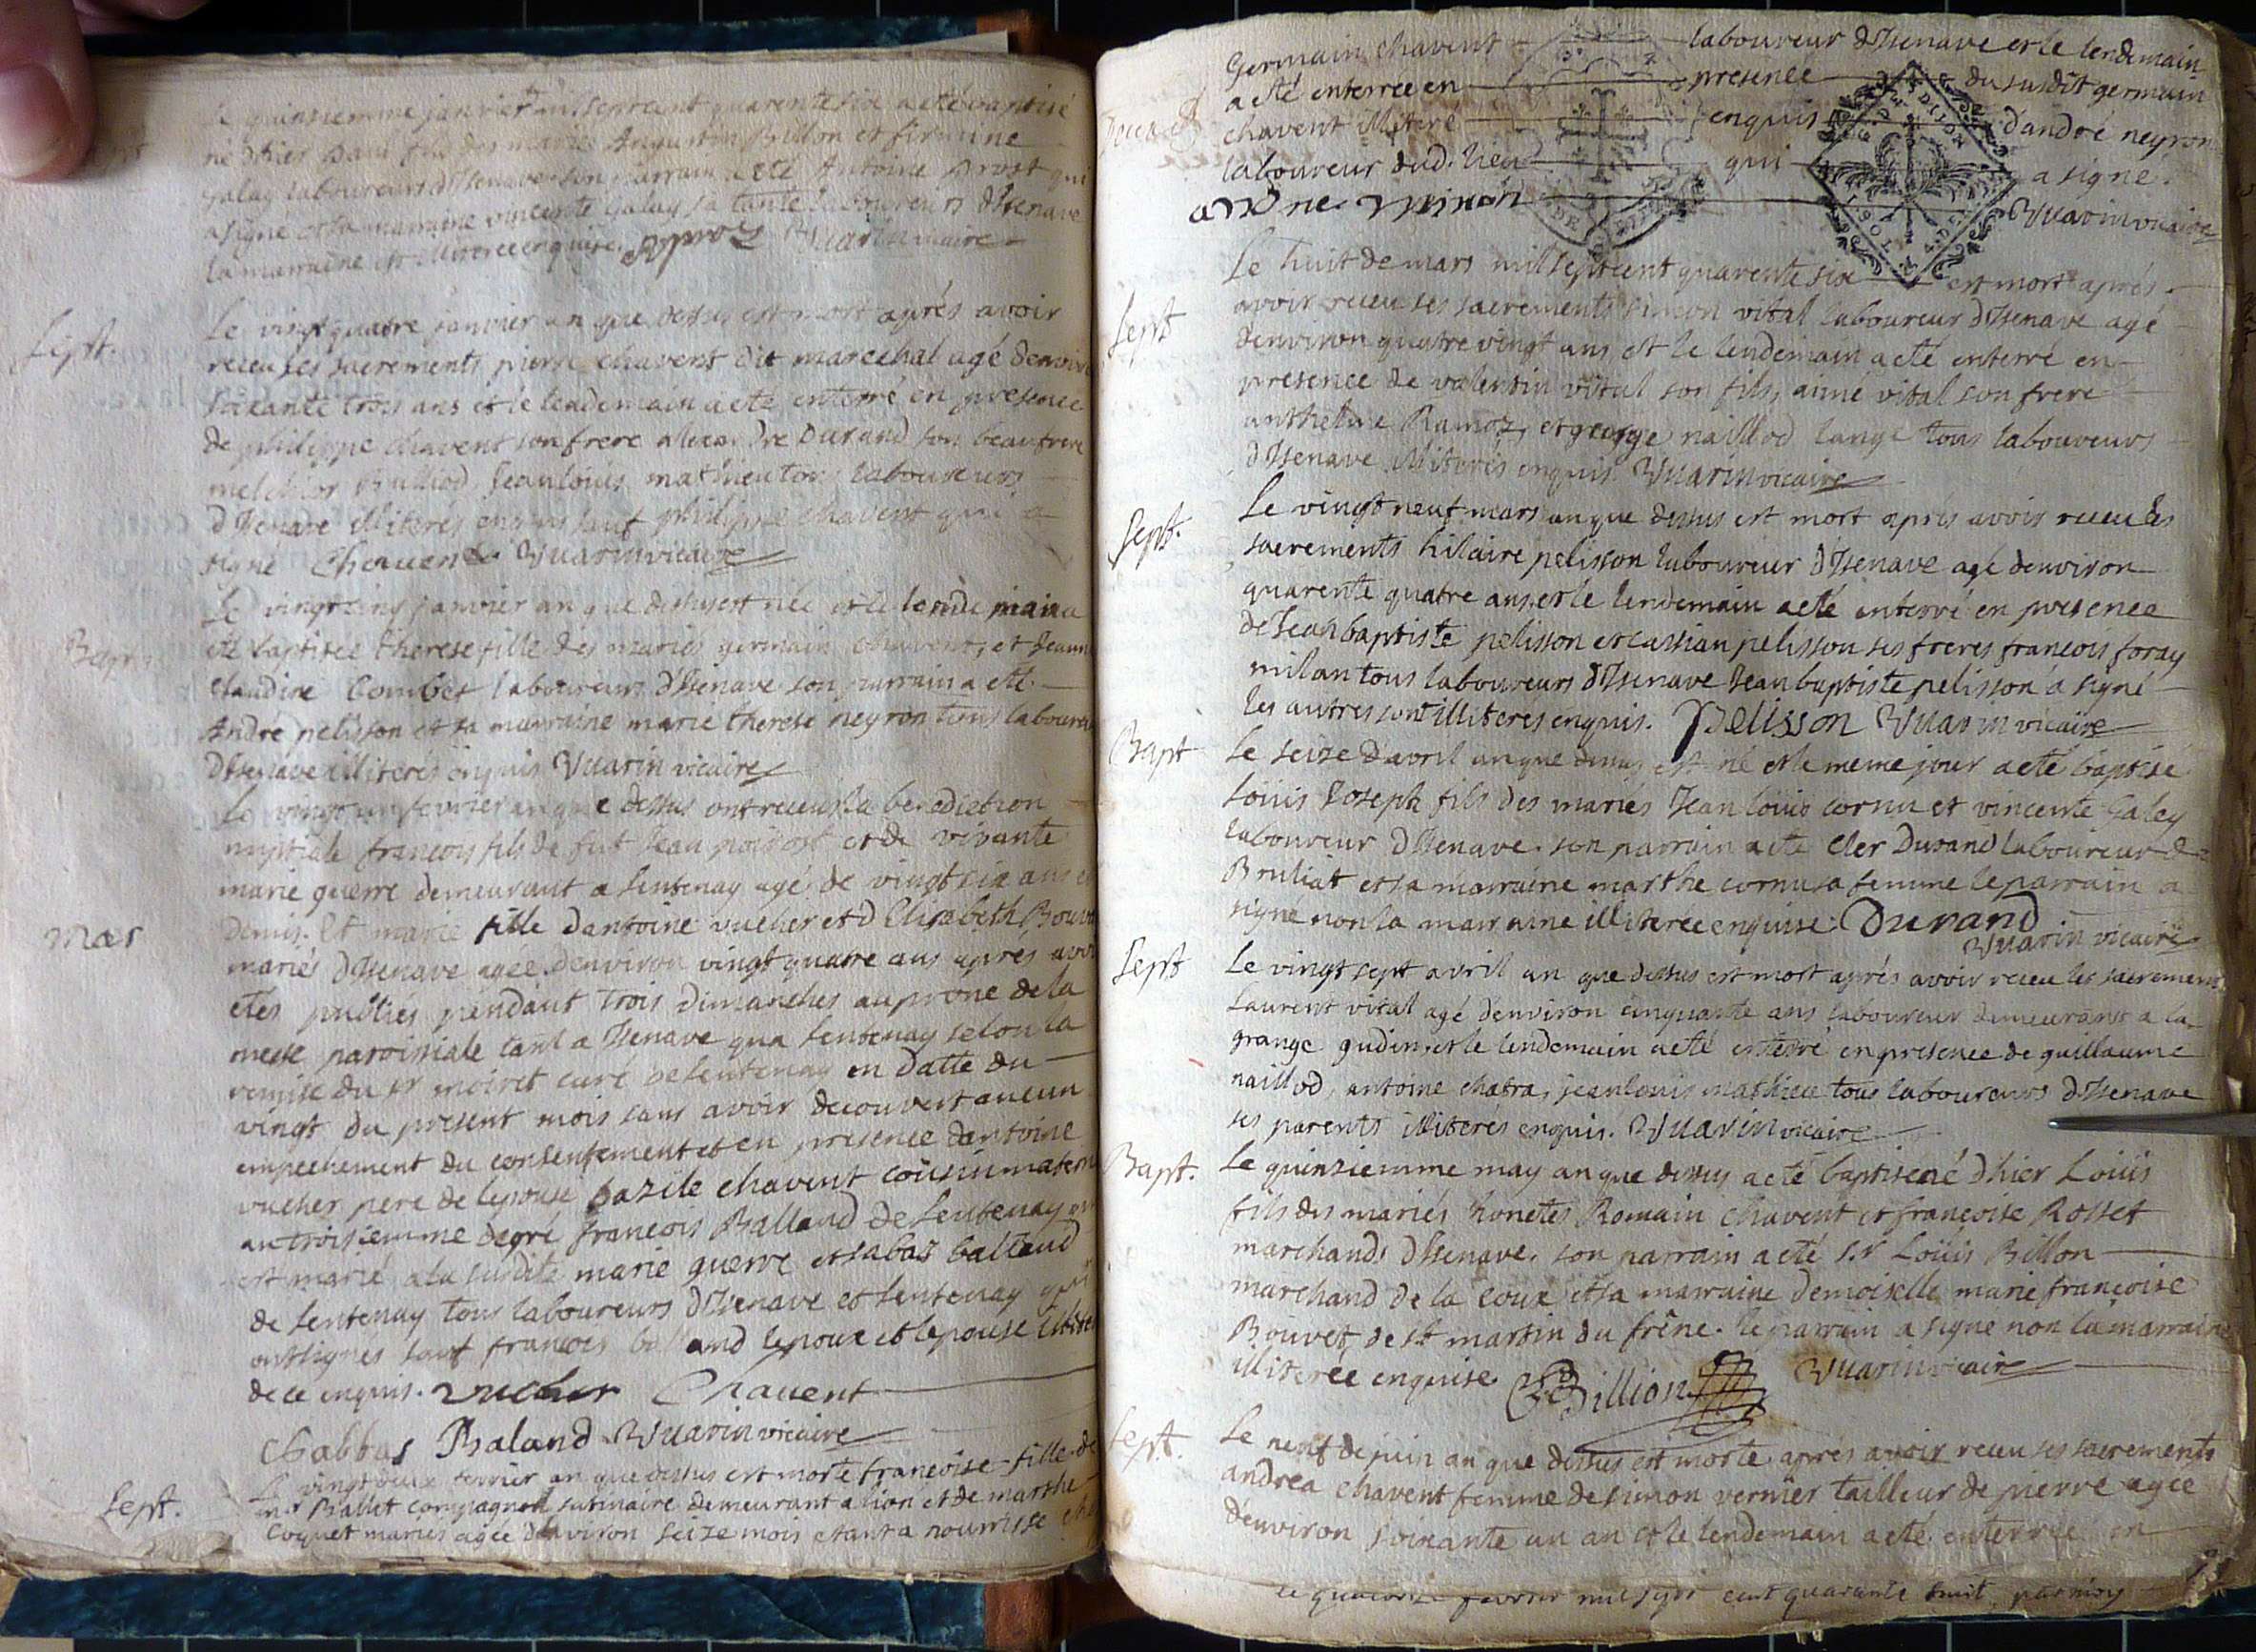 quinziemme janvier mil sept cent quarente six a eté baptisé
né dhier fils des mariés Augustin Billon et firmine
Galay laboureurs dIsenave son parrain a eté Antoine prost qui
a signé et sa marraine vincente Galay sa tante laboureurs dIsenave
la marraine est illiteree enquise. Vuarin vicaire
Sept.
Le vingt quatre janvier an que dessus est mort aprés avoir
receu ses sacrements pierre chavent dit marechal agé denviron
soixante trois ans et le lendemain a eté enterré en presence
de philippe chavent son frere alexandre Durand son beaufrere
melchior Bulliod Jeanlouis mathieu tous laboureurs
dIsenave illiteres enquis sauf philippe chavent qui a
signé Chauent Vuarin vicaire
Bapt.
Le vingt cinq janvier an que dessus est née et le lendemain a
eté baptisée therese fille des mariés germain chavent, et Jeanne
claudine Combet laboureurs dIsenave son parrain a eté
André pelisson et sa marraine marie therese neyron tous laboureurs
dIsenave illiteres enquis Vuarin vicaire
Le vingt un fevrier an que dessus ont receus la benediction
nuptiale francois fils de fut Jean poivost et de vivante
marie guerre demeurant a lentenay agé de vingt six ans et
Mar
Demis. Et marie fille dantoine vucher et dElisabeth Bouvet
mariés dIsenave agée denviron vingt quatre ans aprés avoir
etés publiés pendant trois dimanches au prone de la
messe paroissiale tant a Isenave qua lentenay selon la
remise du sr moiret curé de lentenay en datte du
vingt du present mois sans avoir decouvert aucun
empechement du consentement et en presence dantoine
vucher pere de lepouse bazile chavent cousin maternel
au troisiemme degré francois Balland de lentenay qui
est marié a la susdite marie guerre et sabas balland
de lentenay tous laboureurs dIsenave et lentenay qui
ont signés sauf francois balland lepoux et lepouse illiteres
de ce enquis. vucher Chavent
Chabbas Baland Vuarin vicaire
Sept.
Le vingt deux fevrier an que dessus est morte francoise fille de
mr Ballet compagnon satinaire demeurant a lion et de marthe
Coquet mariés agée denviron seize mois etant a nourrisse chez
Germain chavent laboureur dIsenave et le lendemain
a eté enterree en presence du susdit germain
chavent illiteré enquis dandré neyron
laboureur dud. lieu qui a signé.
andre neiron
Vuarin vicaire
DE DIJON
Sept
Le huit de mars mil sept cent quarente six est mort aprés
avoir receu ses sacrements simeon vital laboureur dIsenave agé
denviron quatre vingt ans et le lendemain a eté enterré en
presence de valentin vital son fils, aimé vital son frere
anthelme Ramoz, et george naillod lange tous laboureurs
dIsenave illiterés enquis Vuarin vicaire
Sept.
Le vingt neuf mars an que dessus est mort aprés avoir receu les
sacrements hilaire pelisson laboureur dIsenave agé denviron
quarente quatre ans et le lendemain a eté enterré en presence
de Jean baptiste pelisson et cassian pelisson ses freres francois foray
milan tous laboureurs dIsenave Jean baptiste pelisson a signé
les autres sont illiteres enquis. Pelisson Vuarin vicaire
Bapt
Le seize davril an que dessus est né et le meme jour a eté baptisé
Loüis Joseph fils des mariés Jean loüis cornu et vincente Galey
laboureur dIsenave. son parrain a eté Cler Durand laboureur de
Bruliat et sa marraine marthe cornu sa femme le parrain a
signé non la marraine illiteree enquise. Durand
Vuarin vicaire
Sept
Le vingt sept avril an que dessus est mort aprés avoir receu les sacrements
Laurent vital agé denviron cinquante ans laboureur demeurant a la
grange gudin, et le lendemain a eté enterré en presence de guillaume
naillod, antoine chatra, jeanlouis mathieu tous laboureurs dIsenave
ses parents illiterés enquis. Vuarin vicaire
Bapt.
Le quinziemme may an que dessus a eté baptisé né dhier Loüis
fils des mariés honetes Romain chavent et francoise Rosset
marchands dIsenave. son parrain a eté s.r Loüis Billon
marchand de la coux et sa marraine demoiselle marie francoise
Bouvet de st martin du frêne. le parrain a signe non la marraine
illiteree enquise Billion Vuarin vicaire
Sept.
Le neuf de juin an que dessus est morte aprés avoir receu ses sacrements
andrea chavent femme de simon vernier tailleur de pierre agée
denviron soixante un an et le lendemain a eté enterrée en
le quatorze fevrier mil sept cent quarante huit, par moy